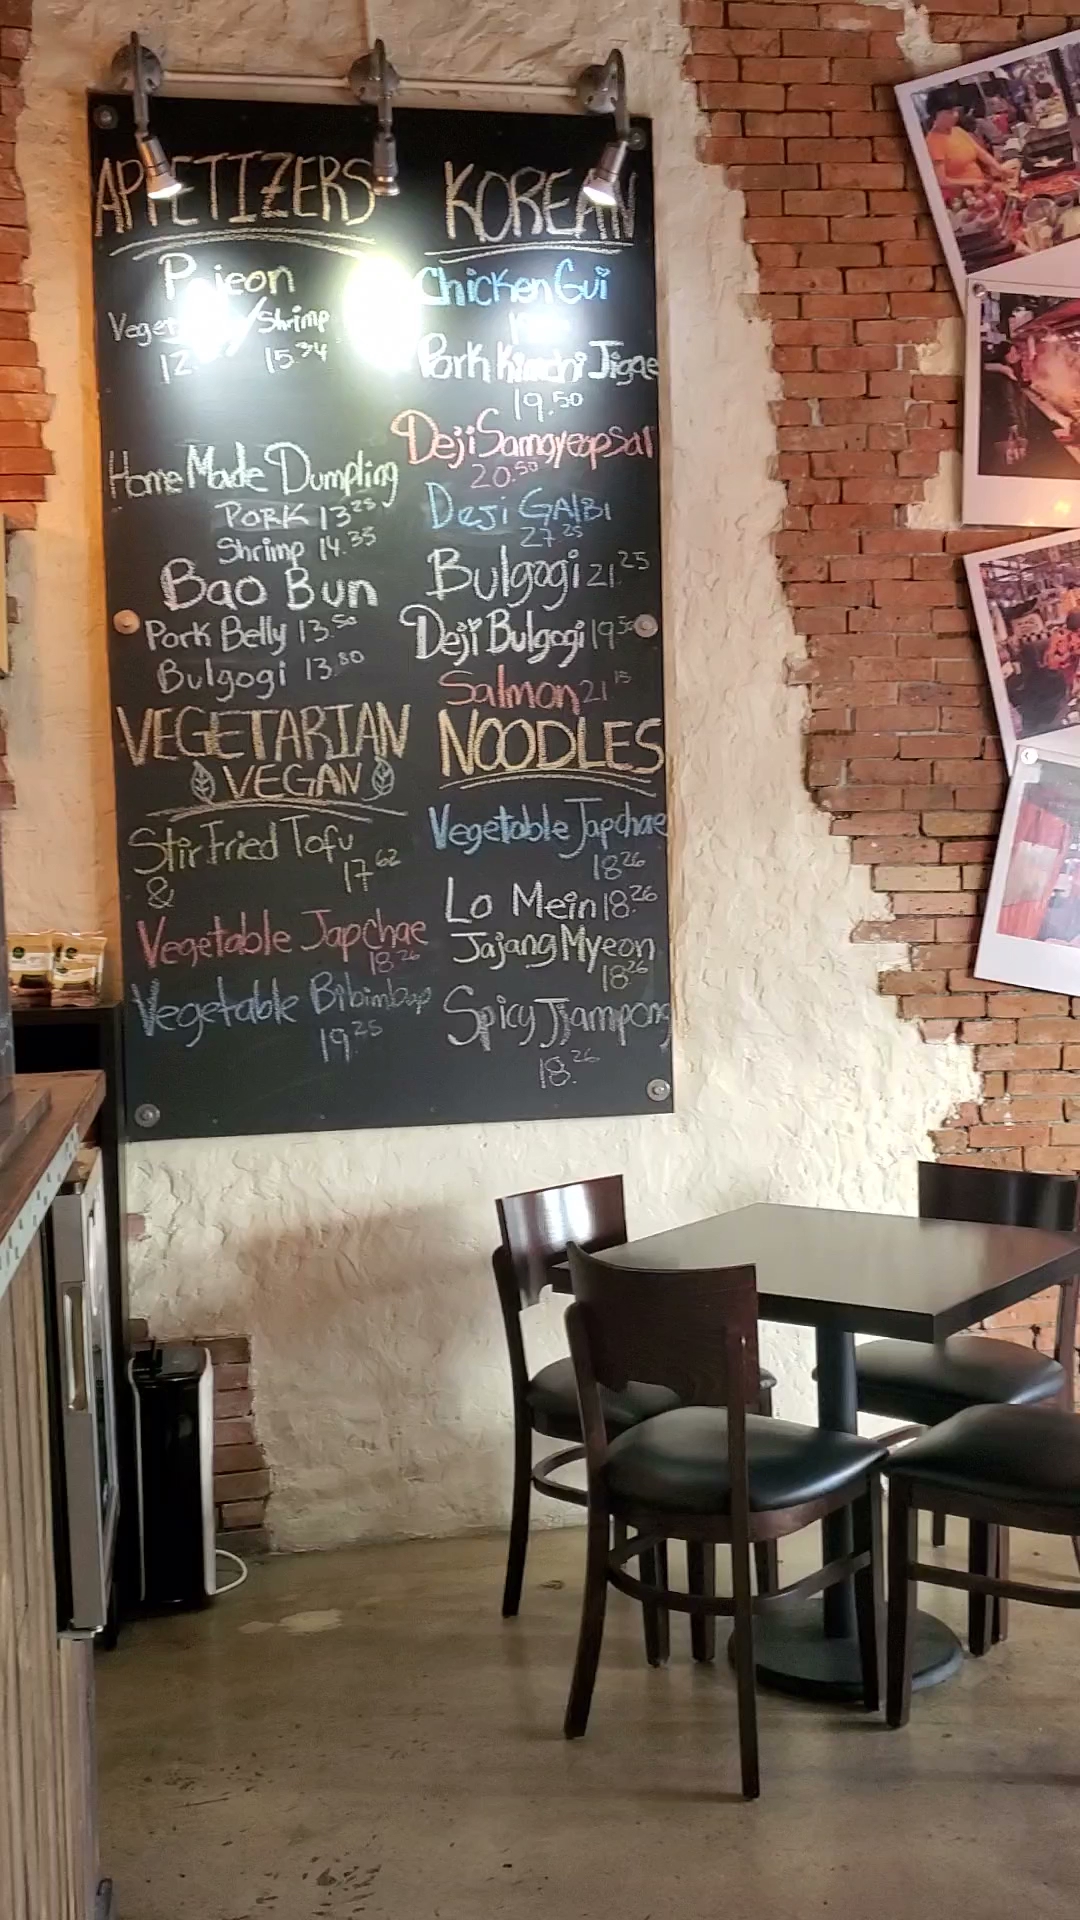 APPETIZERS
Pajeon
Shrimp
15.34
Home Made Dumpling
PORK 13.25
Shrimp 14.35
Bao Bun
Pork Belly 13.50
Bulgogi 13.80
VEGETARIAN
VEGAN
Stir Fried Tofu
17.62
&
Vegetable Japchae
18.26
Vegetable Bibimbap
19.25
KOREAN
Chicken Gui
Pork Kimchi Jigae
19.50
Deji Samgyeopsal
20.50
Deji GAlBi
27.25
Bulgogi 21.25
Deji Bulgogi 19.50
Salmon 21.15
NOODLES
Vegetable Japchae
18.26
Lo Mein 18.26
Jajang Myeon
18.26
Spicy Jjampong
18.26